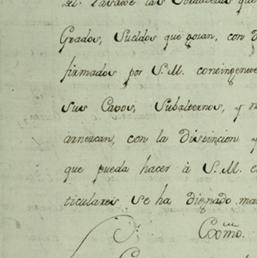 Grados, Sueldos que gosan, con d
firmados por S.M.
sus Cavos, Subalternos, y
con la distincion y
que pueda hacer à S.M. e
ticulares se ha dignado ma
Exmo.